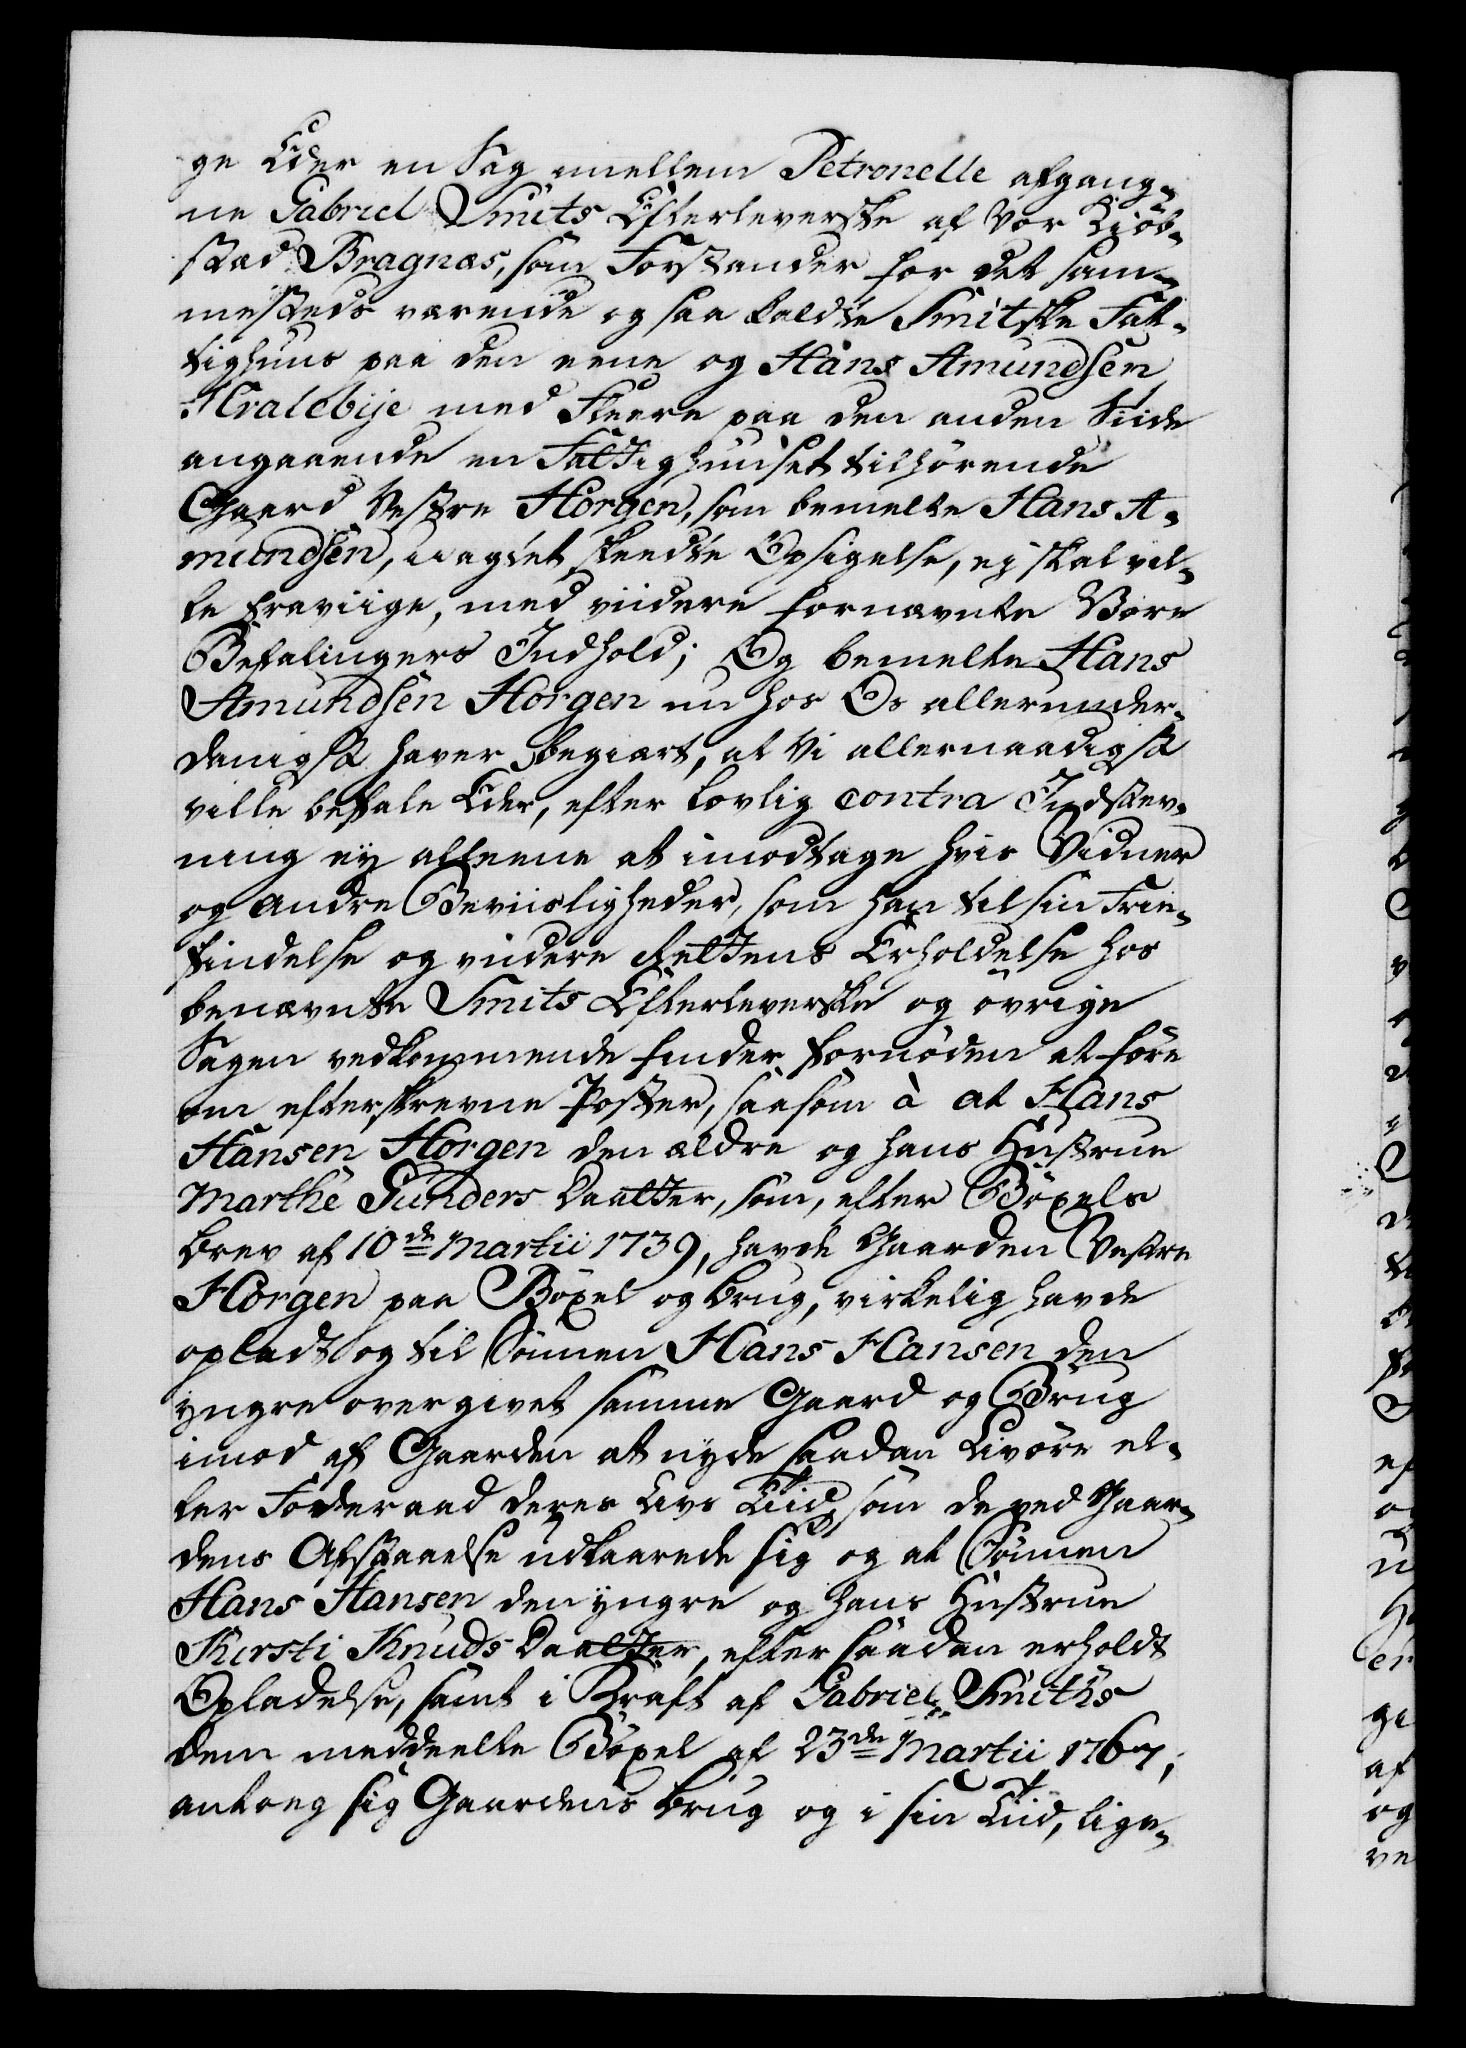 ge Eder en Sag imellem Petronelle afgang¬
ne Gabriel Smits Efterleverske af Vor Kiöb¬
stæd Bragnæs, som Forstander for det sam¬
mesteds værende og saa kaldte Smitske Fat¬
tighuus paa den eene og Hans Amundsen
Hralebije med Fleere paa den anden Siide
angaaende en Fattighuuset tilhörende
Gaard Vestre Horgen, som bemelte Hans A¬
mundsen, uagtet skeedte Opsigelse, ej skal vil¬
le fraviige, med viidere fornævnte Vore
Befalingers Indhold; Og bemelte Hans
Amundsen Horgen nu hos Os allerunder¬
danigst haver begiært, at Vi allernaadigst
ville befale Eder, efter lovlig contra Indstev¬
ning ey alleene at imodtage hvis Vidner
og andre Beviisligheder, som han til sin Frie¬
findelse og viidere Rettens Erholdelse hos
benævnte Smits Efterleverske og övrige
Sagen vedkommende finder fornöden at före
om efterskrevne Poster, saasom à at Hans
Hansen Horgen den ældre og hans Hustrue
Marthe Gunders Daatter, som, efter Böxels
brev af 10de Martii 1739, havde Gaarden Vestre
Horgen paa Böxel og brug, virkelig havde
opladt og til Sönnen Hans Hansen den
yngre overgivet samme Gaard og Brug
imod af Gaarden at nyde saadan Livöre el¬
ler Föderaad deres Livs Tiid, som de ved Gaar¬
dens Afstaaelse udkaarede sig og at Sönnen
Hans Hansen den yngre og hans Hustrue
Kirsti Knuds Daatter, efter saadan erholdt
Opladelse, samt i Kraft af Gabriel Smiths
dem meddeelte Böxel af 23de Martii 1767,
antoeg sig Gaardens brug og i sin Tiid, lige¬